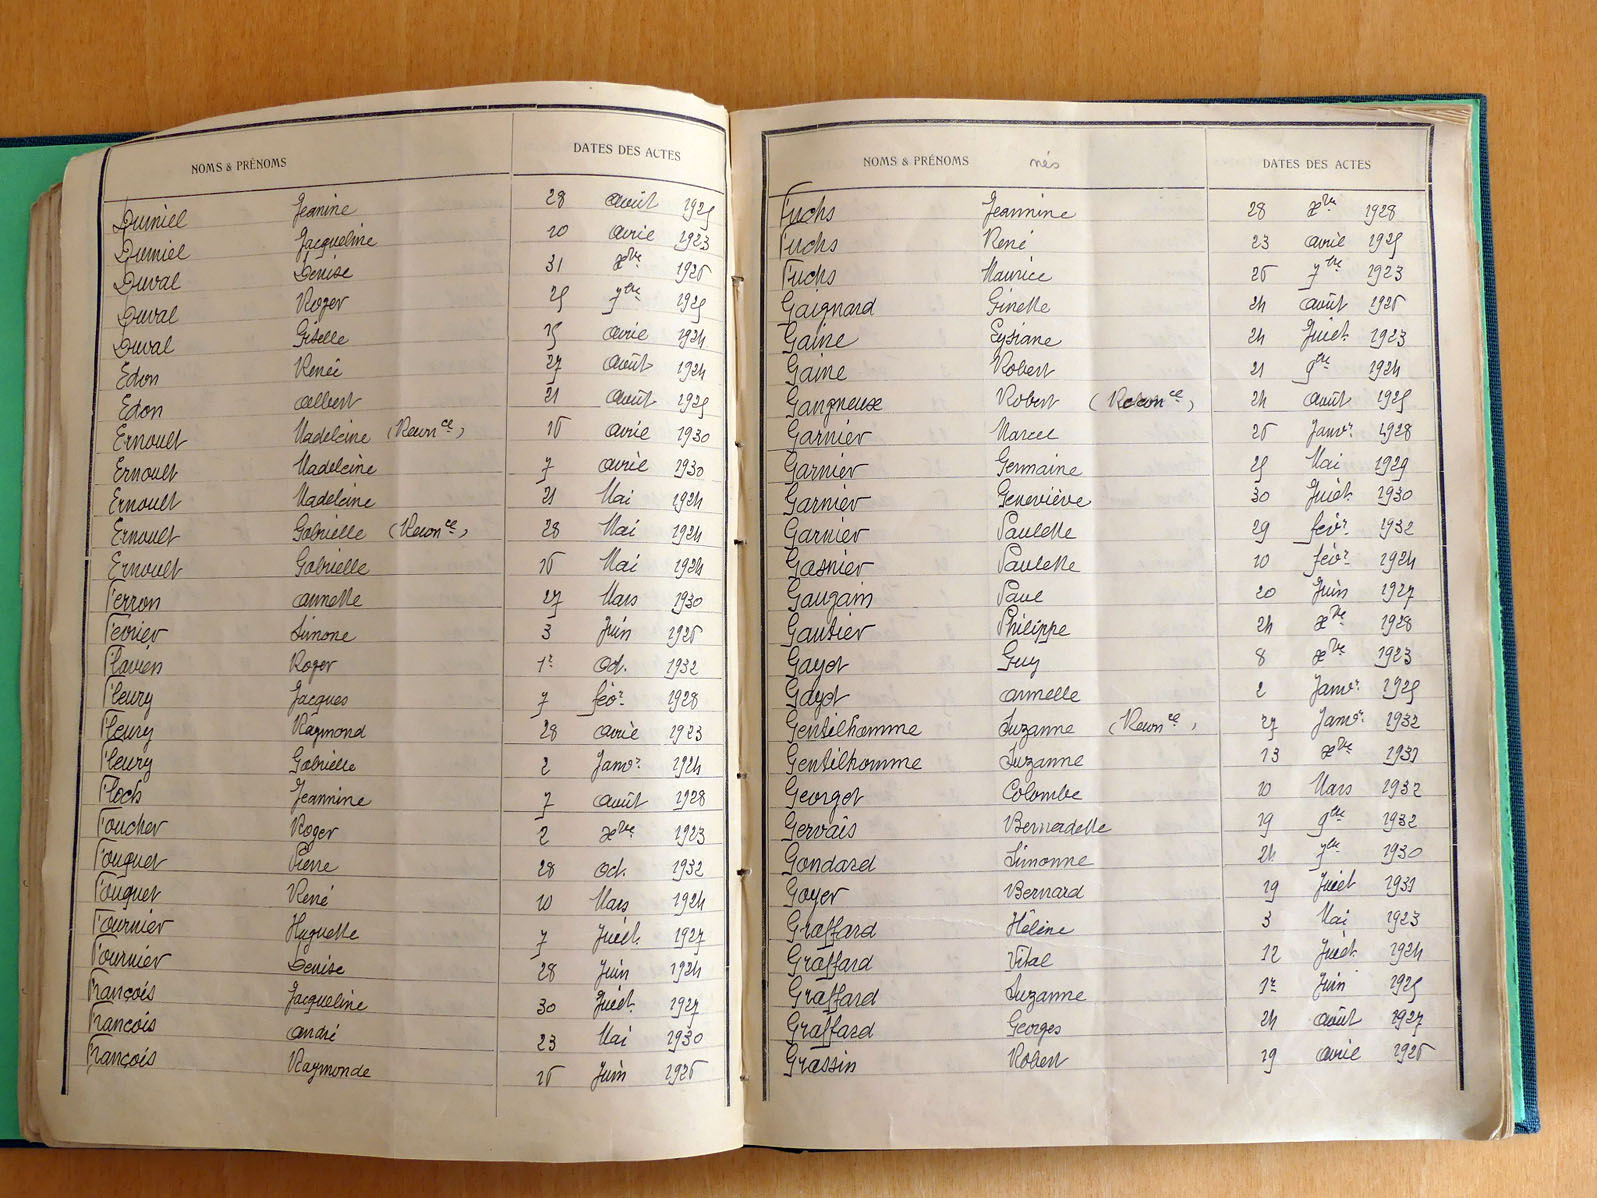 NOMS & PRÉNOMS DATES DES ACTES
Dumiel Jeanine 28 août 1925
Dumiel Jacqueline 10 avril 1923
Duval Denise 31 xbre 1926
Duval Roger 25 7bre 1925
Duval Giselle 15 avril 1924
Edon René 27 août 1924
Edon Albert 21 août 1925
Ernoult Madeleine (Reconce) 16 avril 1930
Ernoult Madeleine 7 avril 1930
Ernoult Madeleine 21 Mai 1924
Ernoult Gabrielle (Reconce) 28 Mai 1924
Ernoult Gabrielle 16 Mai 1924
Ferron Annette 27 Mars 1930
Février Simone 3 Juin 1926
Flavien Roger 1r Oct. 1932
Fleury Jacques 7 févr 1928
Fleury Raymond 28 avril 1923
Fleury Gabrielle 2 Janvr 1924
Floch Jeannine 7 août 1928
Foucher Roger 2 xbre 1923
Fouquet Pierre 28 Oct. 1932
Fouquet René 10 Mars 1924
Fournier Huguette 7 Juilet. 1927
Fournier Denise 28 Juin 1924
François Jacqueline 30 Juilet. 1927
François André 23 Mai 1930
François Raymonde 16 Juin 1926
NOMS & PRÉNOMS nés DATES DES ACTES
Fuchs Jeannine 28 xbre 1928
Fuchs René 23 avril 1925
Fuchs Maurice 26 7bre 1923
Gaignard Ginette 24 août 1926
Gaine Lysiane 24 Juilet. 1923
Gaine Robert 21 9bre 1924
Gangneux Robert (Reconce) 24 août 1925
Garnier Marcel 26 Janvr 1928
Garnier Germaine 25 Mai 1929
Garnier Geneviève 30 Juilet. 1930
Garnier Paulette 29 févr 1932
Gasnier Paulette 10 févr 1924
Gaugain Paul 20 Juin 1927
Gautier Philippe 24 xbre 1928
Gayot Guy 8 xbre 1923
Gayot Armelle 2 Janvr 1925
Gentilhomme Suzanne (Reconce) 27 Janvr 1932
Gentilhomme Suzanne 13 xbre 1931
Georget Colombe 10 Mars 1932
Gervais Bernadette 19 9bre 1932
Gondard Simonne 24 7bre 1930
Goyer Bernard 19 Juilet 1931
Graffard Hélène 3 Mai 1923
Graffard Vital 12 Juilet. 1924
Graffard Suzanne 1r Juin 1925
Graffard Georges 24 août 1927
Grassin Robert 19 avril 1926